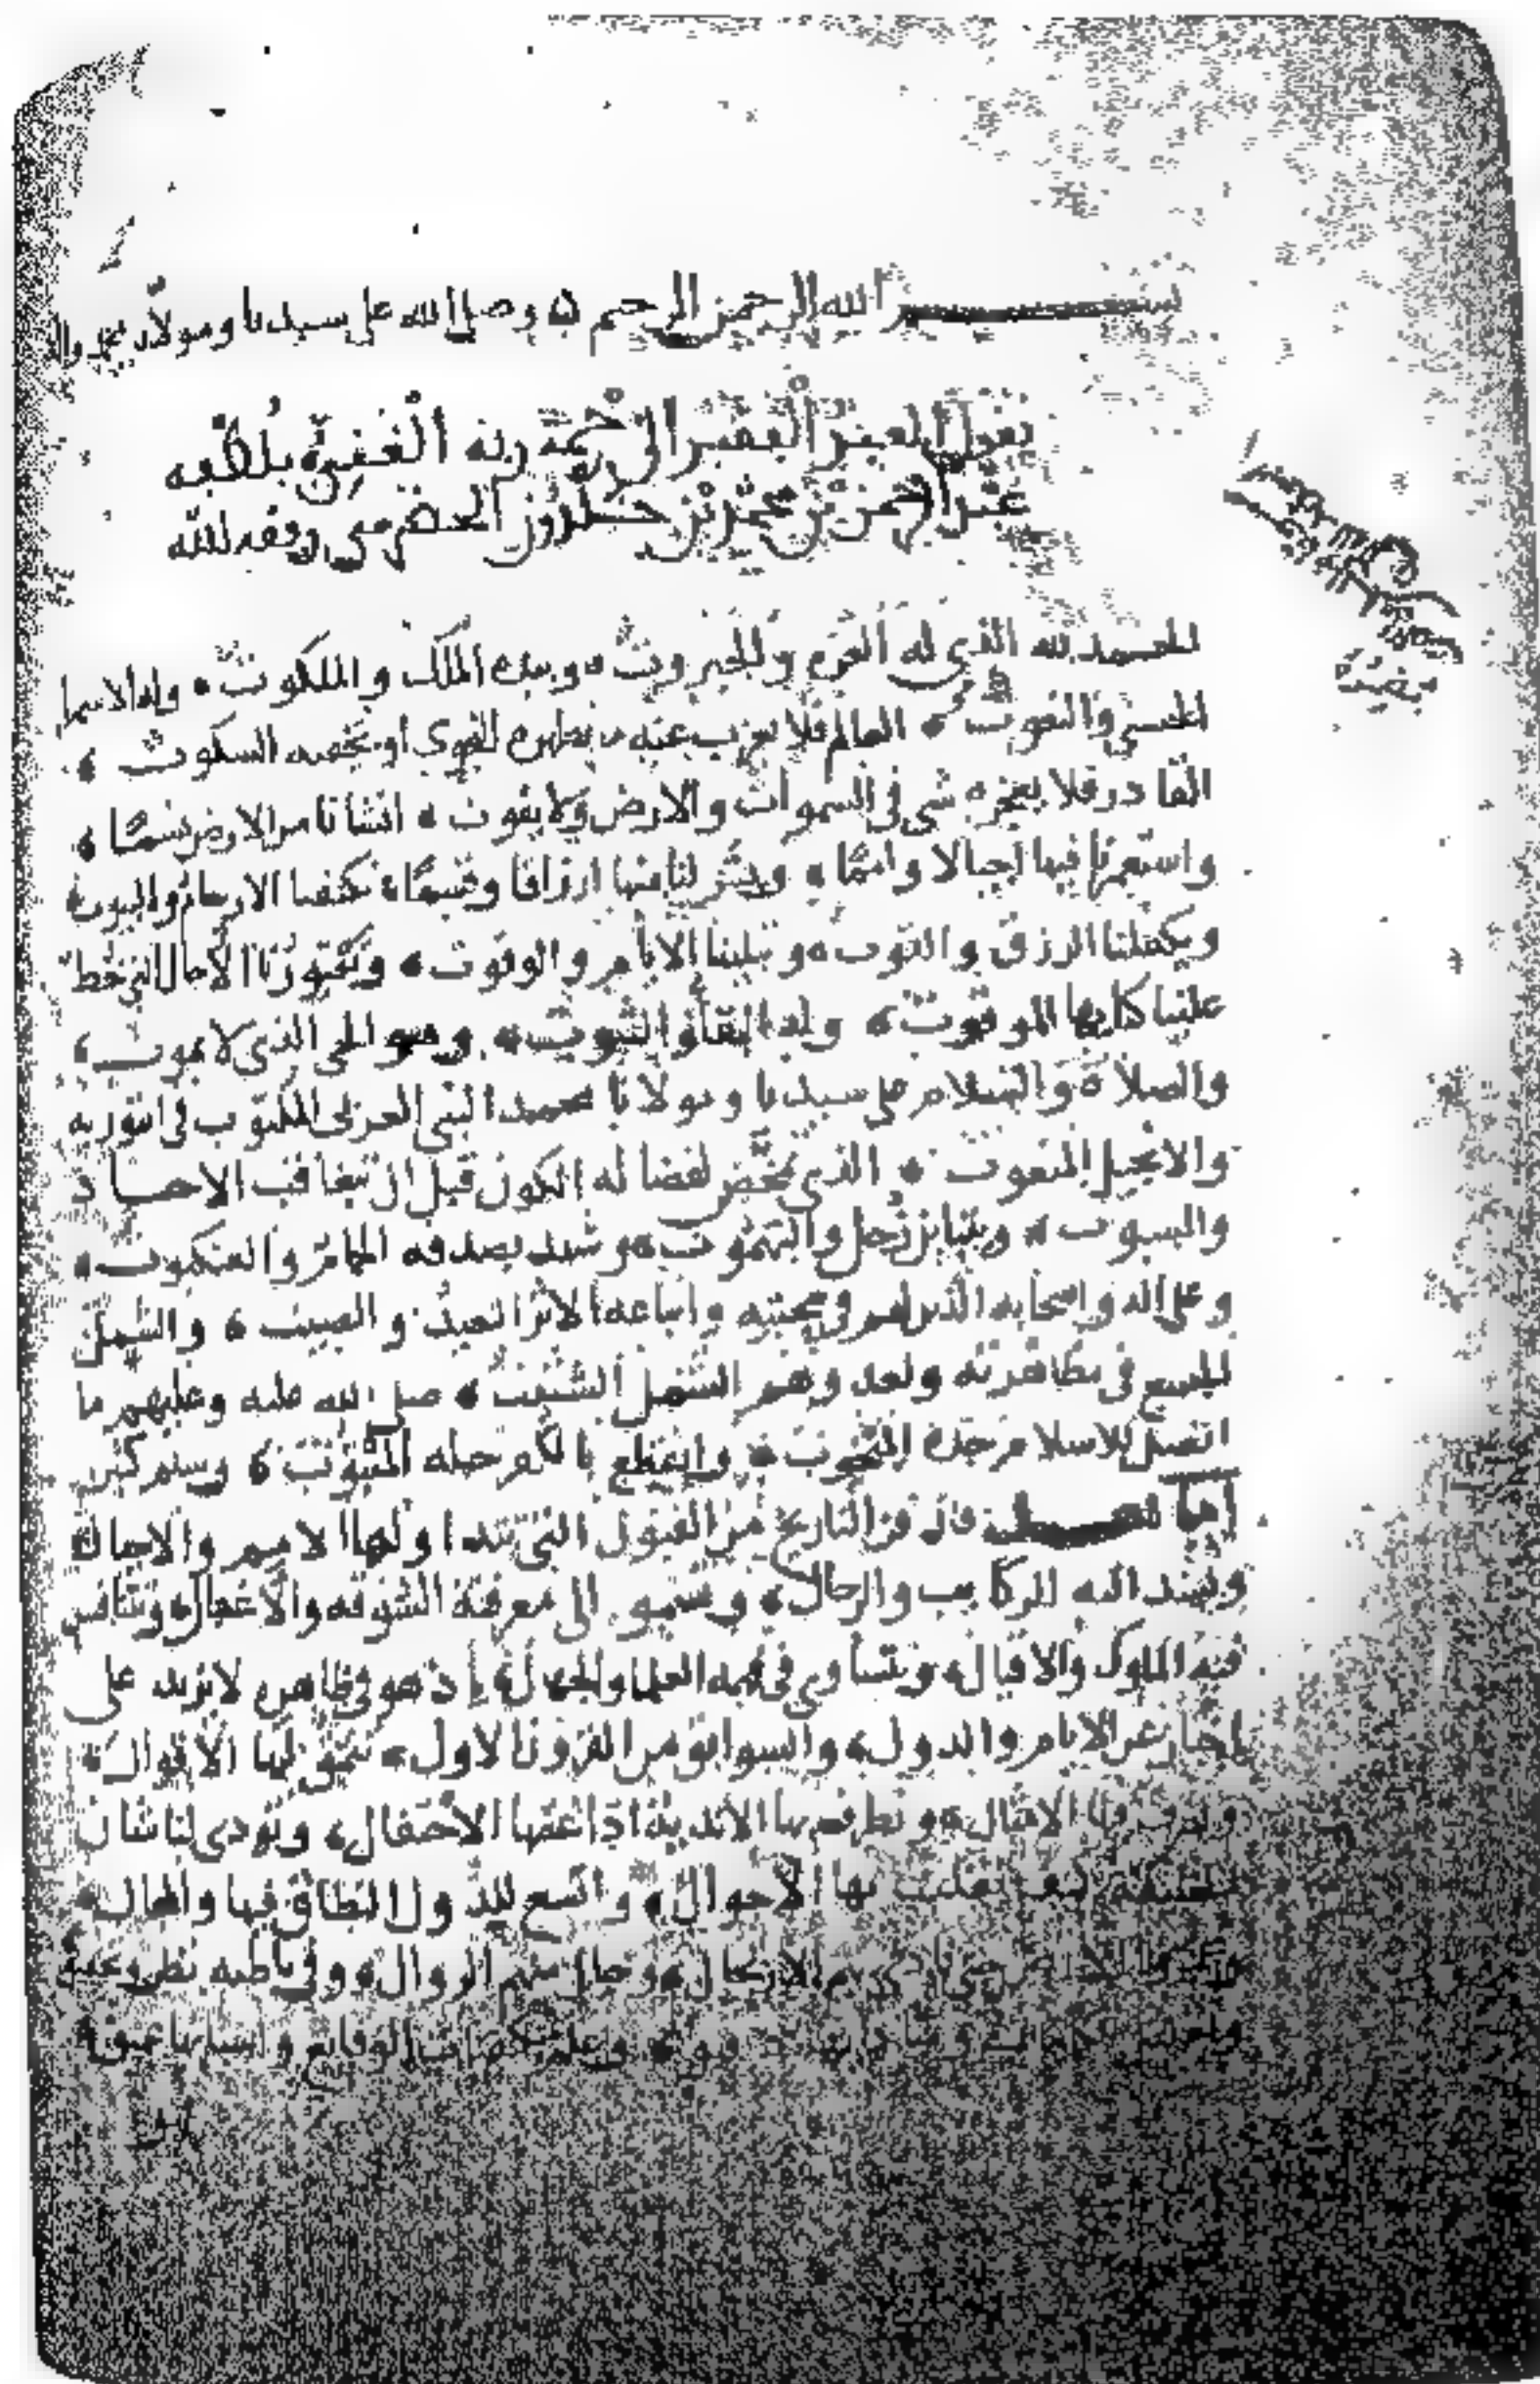 بسم الله الرحمن الرحيم ه وصلى الله على سيدنا ومولانا محمد واله
يقول العبد الفقير الى رحمة ربه الغني بلطفه
عبد الرحمن بن محمد بن خلدون الحضرمي وفقه الله
الحمد لله الذي له العزة والجبروت وبيده الملك والملكوت وله الاسما
الحسنى والنعوت العالم فلا يعزب عنه ما تظهره النجوى او يخفيه السكوت
القادر فلا يعجزه شي في السموات والارض ولا يفوت انشانا من الارض نسما
واستعمرنا فيها اجيالا وامما ويسر لنا منها ارزاقا وقسما تكنفنا الارحام والبيوت
ويكفلنا الرزق والقوت وتبلينا الايام والوقوت وتعتورنا الآجال التي خط
علينا كتابها الموقوت وله البقا والثبوت وهو الحي الذي لا يموت
والصلاة والسلام على سيدنا ومولانا محمد النبي العربي المكتوب في التورية
والانجيل المنعوت الذي تمخض لفضاله الكون قبل ان تتعاقب الاحاد
والسبوت ويتباين زحل والبهموت وشهد بصدقه الحمام والعنكبوت
وعلى اله واصحابه الذين لهم في محبته واتباعه الاثر البعيد والصيت والشمل
الجميع في مظاهرته ولعدوهم الشمل الشتيت صلى الله عليه وعليهم ما
اتصل بالاسلام جده المبخوت وانقطع بالكفر حبله المبتوت وسلم كثيرا
اما بعد فان فن التاريخ من الفنون التي تتداولها الامم والاجيال
وتشد اليه الركايب والرحال وتسمو الى معرفته السوقه والاغفال وتتنافس
فيه الملوك والاقيال ويتساوى في فهمه العلما والجهال اذ هو في ظاهره لا يزيد على
اخبار عن الايام والدول والسوابق من القرون الاول تنمق لها الاقوال
وتصرف فيها الامثال وتطرف بها الاندية اذا غصها الاحتفال وتودي لنا شان
الخليقة كيف تقلبت بها الاحوال واتسع للدول النطاق فيها والمجال
وعمروا الارض حتى نادى بهم الارتحال وحان منهم الزوال وفي باطنه نظر وتحقيق
وعلم بكيفيات الوقايع واسبابها عميق